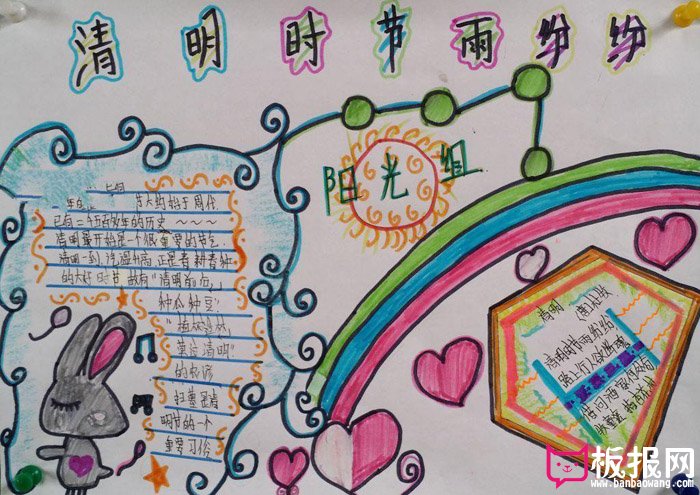 清明时节雨纷纷
阳光组
节大约始于周代
已有二千五百多年的历史
清明最开始是一个很重要的节气
清明一到 气温升高 正是春耕春种
的大好时节 故有"清明前后,
种瓜种豆"
"植树造林,
莫过清明"
的农谚
扫墓是清
明节的一个
重要习俗
清明
(唐)杜牧
清明时节雨纷纷
路上行人欲断魂
借问酒家何处有
牧童遥指杏花村
板报网
www.banbaowang.com